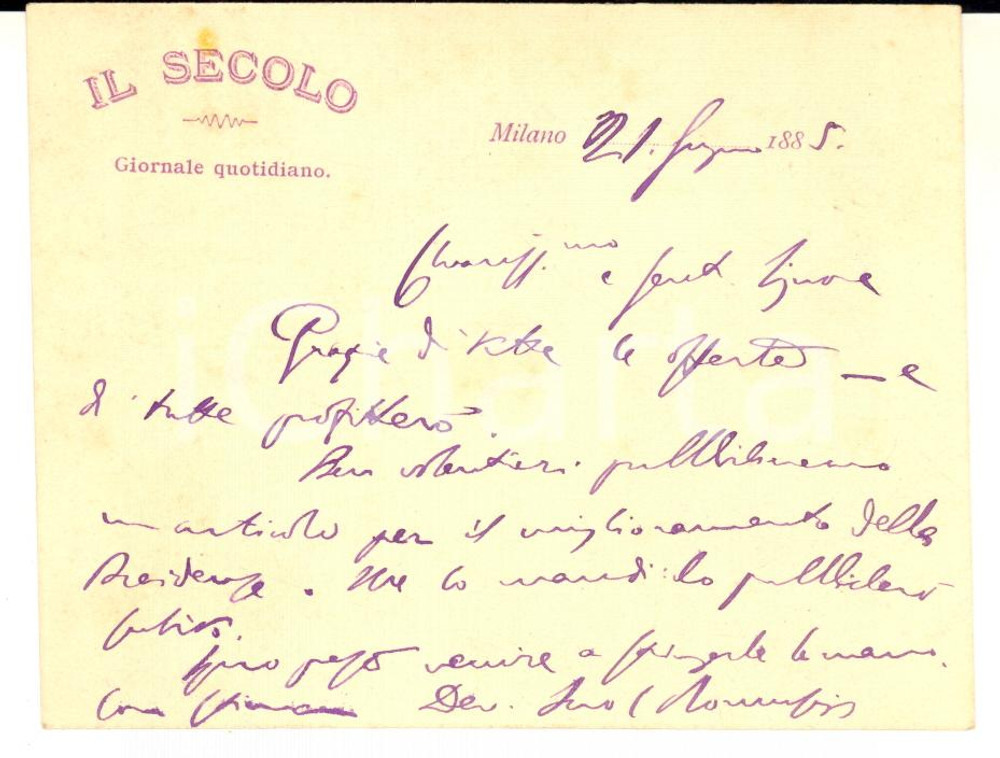 IL SECOLO
Giornale quotidiano.
Milano 21. Giugno 1885.
Chariss.mo e gent. Signore
Grazie di tutte le offerte — e
di tutte profitterò.
Ben volentieri pubblicheremo
un articolo per il miglioramento delle
Me lo mandi: lo pubblicherò
subito.
venire a stringerle la mano.
Con stima Dev. Suo C Romussi
iCharta